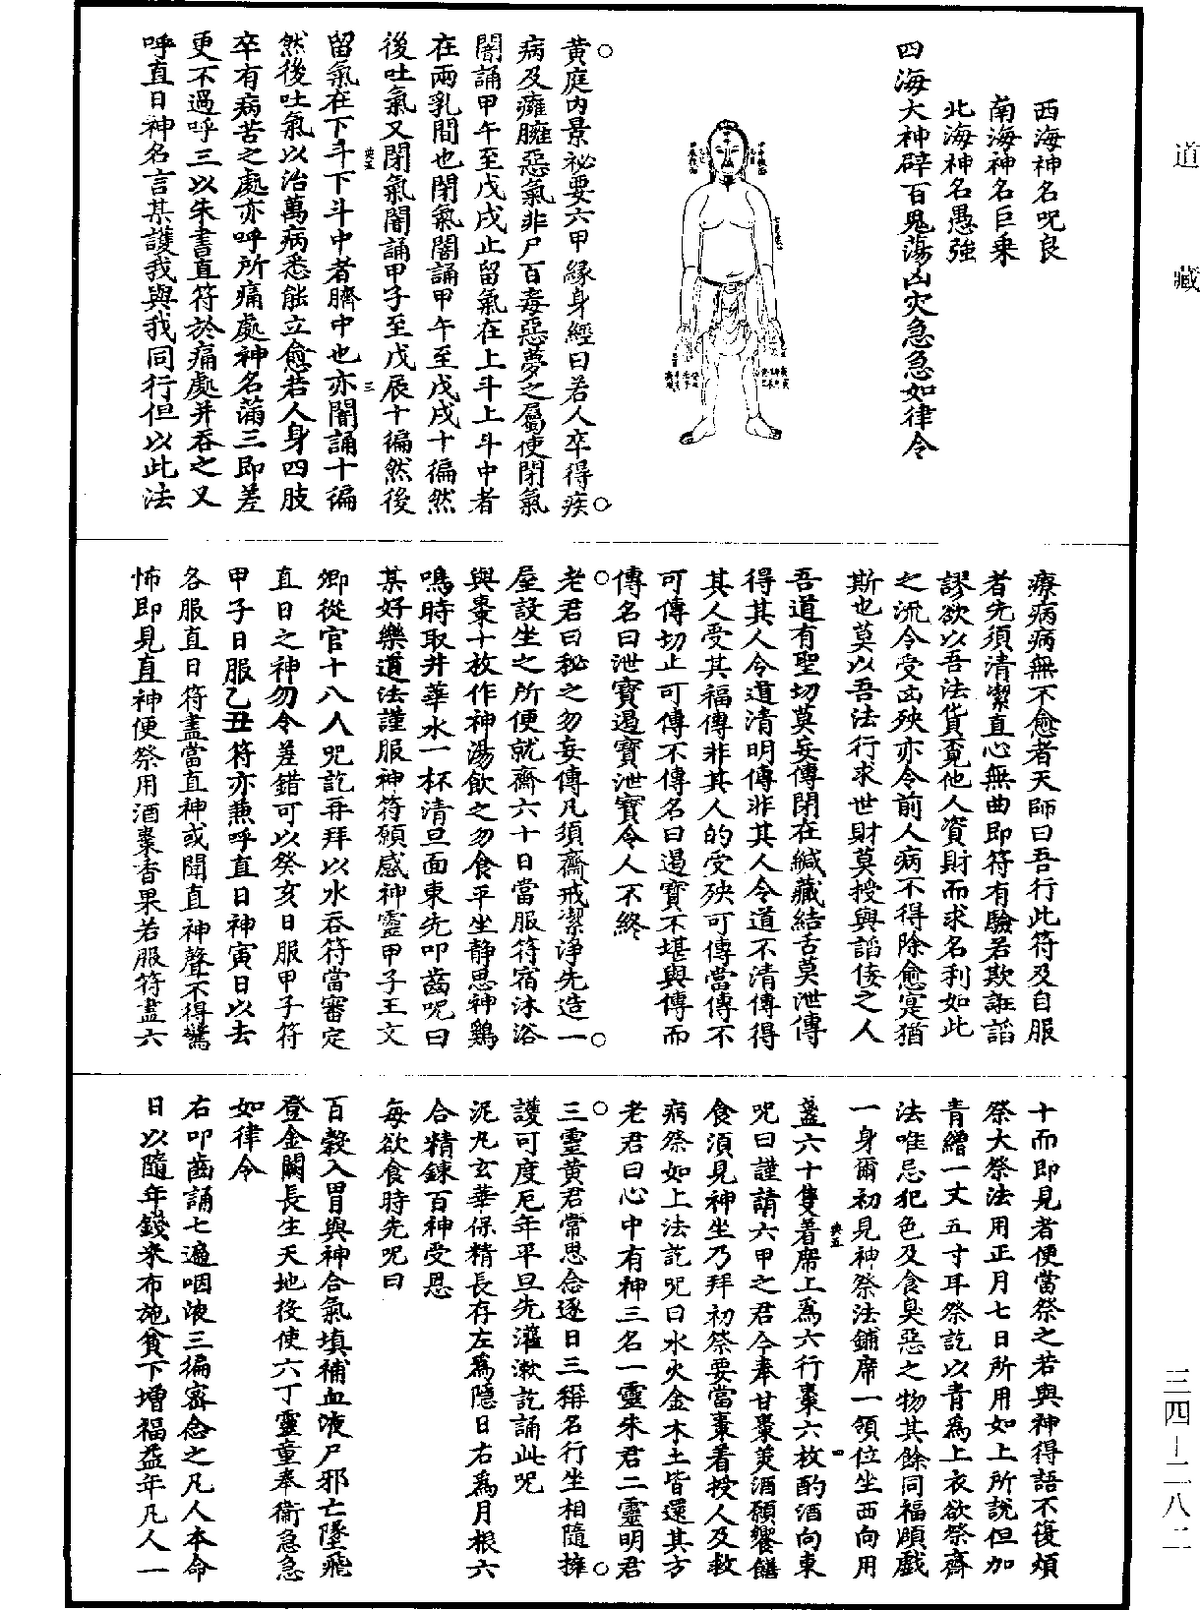 道藏
西海神名呪良
南海神名巨乘
北海神名愚強
四海大神辟百鬼蕩凶灾急急如律令
黃庭內景祕要六甲緣身經曰若人卒得疾
病及癰腫惡氣非尸百毒惡夢之屬使閉氣
闇誦甲午至戊戌止留氣在上斗上斗中者
在兩乳間也閉氣闇誦甲午至戊戌十徧然
後吐氣又閉氣闇誦甲子至戊辰十徧然後
留氣在下斗下斗中者臍中也亦闇誦十徧
然後吐氣以治萬病悉能立愈若人身四肢
卒有病苦之處亦呼所痛處神名滿三即差
更不過呼三以朱書直符於痛處并吞之又
呼直日神名言某護我與我同行但以此法
療病病無不愈者天師曰吾行此符及自服
者先須清潔直心無曲即符有驗若欺誑諂
謬欲以吾法貨覓他人資財而求名利如此
之流令受凶殃亦令前人病不得除愈寔猶
斯也莫以吾法行求世財莫授與諂倿之人
吾道有聖切莫妄傳閉在緘藏結舌莫泄傳
得其人令道清明傳非其人令道不清傳得
其人受其福傳非其人的受殃可傳當傳不
可傳切止可傳不傳名曰遏寶不堪與傳而
傳名曰泄寶遏寶泄寶令人不終
老君曰秘之勿妄傳凡須齋戒潔淨先造一
屋設坐之所便就齋六十日當服符宿沐浴
與棗十枚作神湯飲之勿食平坐静思神鷄
鳴時取井華水一杯清旦面東先叩齒呪曰
某好樂道法謹服神符願感神靈甲子王文
卿從官十八人呪訖再拜以水吞符當審定
直日之神勿令差錯可以癸亥日服甲子符
甲子日服乙丑符亦兼呼直日神寅日以去
各服直日符盡當直神或聞直神聲不得驚
怖即見直神便祭用酒棗香果若服符盡六
十而即見者便當祭之若與神得語不復煩
祭大祭法用正月七日所用如上所說但加
青繒一丈五寸耳祭訖以青爲上衣欲祭齋
法唯忌犯色及食臭惡之物其餘同福願戲
一身爾初見神祭法鋪席一領位坐西向用
盞六十隻著席上爲六行棗六枚酌酒向東
呪曰謹請六甲之君今奉甘棗美酒願饗饍
食須見神坐乃拜初祭要當棗着授人及救
病祭如上法訖呪曰水火金木土皆還其方
老君曰心中有神三名一靈朱君二靈明君
三靈黄君常思念逐日三稱名行坐相隨擁
護可度厄年平旦先灌漱訖誦此呪
泥丸玄華保精長存左爲隱日右爲月根六
合精鍊百神受恩
每欲食時先呪曰
百穀入胃與神合氣填補血液尸邪亡墜飛
登金闕長生天地役使六丁靈童奉衞急急
如律令
右叩齒誦七遍咽液三徧密念之凡人本命
日以隨年錢米布施貧下增福益年凡人一
三四—二八二